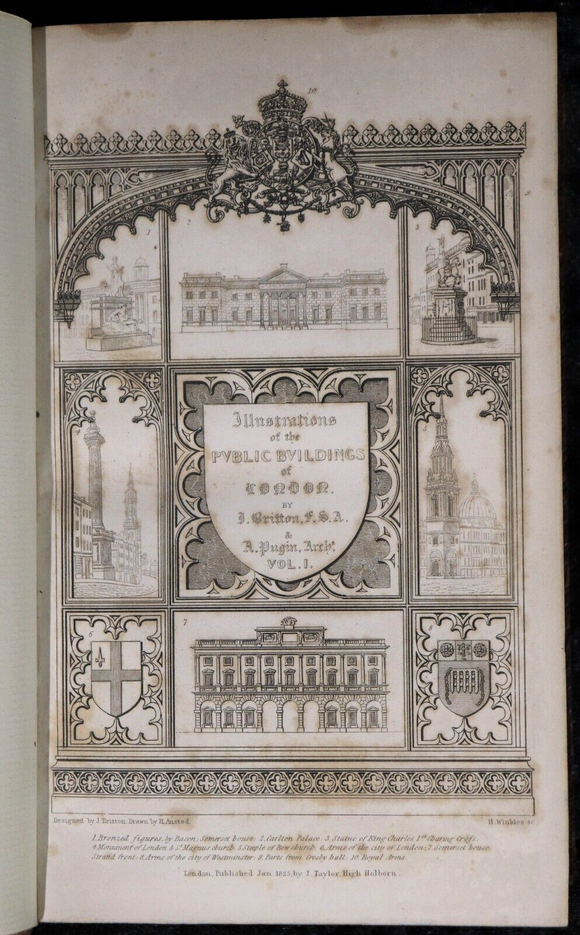 10
1
2
3
Illustrations
of the
PVBLIC BVILDINGS
of
LONDON.
BY
J. Britton, F.S.A.
&
A. Pugin, Archt.
VOL. I.
6
7
Designed by J. Britton, Drawn by H. Ansted.
H. Winkles sc
1. Bronzed figures, by Bacon; Somerset house; 2. Carlton Palace; 3. Statue of King Charles 1st Charing Cross;
4. Monument of London & St Magnus church 5. Steeple of Bow church 6. Arms of the city of London; 7. Somerset house
Strand front; 8. Arms of the city of Westminster; 9. Parts from Crosby hall. 10. Royal Arms.
London, Published Jan. 1825, by J. Taylor, High Holborn